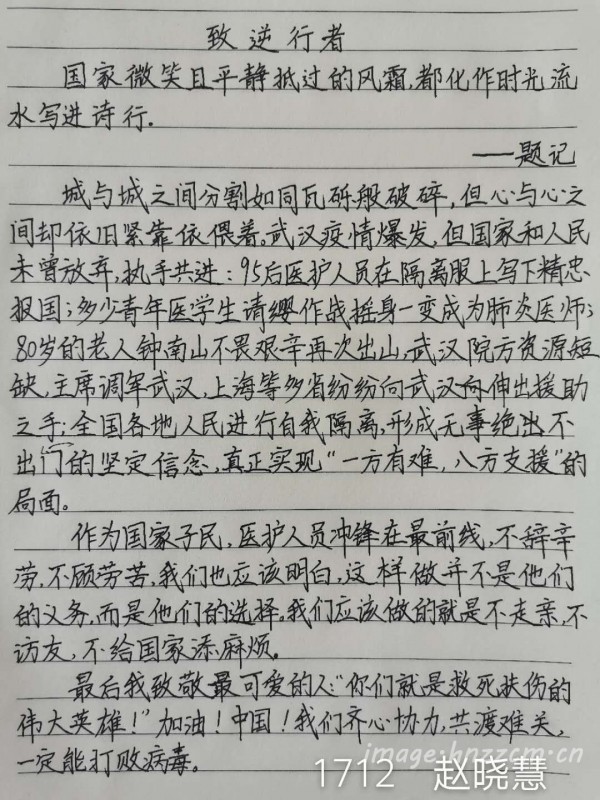 致逆行者
国家微笑且平静抵过的风霜,都化作时光流
水写进诗行.
——题记
城与城之间分割如同瓦砾般破碎,但心与心之
间却依旧紧靠依偎着。武汉疫情爆发,但国家和人民
未曾放弃,执手共进:95后医护人员在隔离服上写下精忠
报国;多少青年医学生请缨作战摇身一变成为肺炎医师;
80岁的老人钟南山不畏艰辛再次出山,武汉院方资源短
缺,主席调军武汉,上海等多省纷纷向武汉伸出援助
之手;全国各地人民进行自我隔离,形成无事绝出不
出门的坚定信念,真正实现“一方有难,八方支援”的
局面。
作为国家子民,医护人员冲锋在最前线,不辞辛
劳,不顾劳苦,我们也应该明白,这样做并不是他们
的义务,而是他们的选择。我们应该做的就是不走亲,不
访友,不给国家添麻烦。
最后我致敬最可爱的人:“你们就是救死扶伤的
伟大英雄!”加油!中国!我们齐心协力,共渡难关,
一定能打败病毒。
image.hnzzcm.cn
1712 赵晓慧